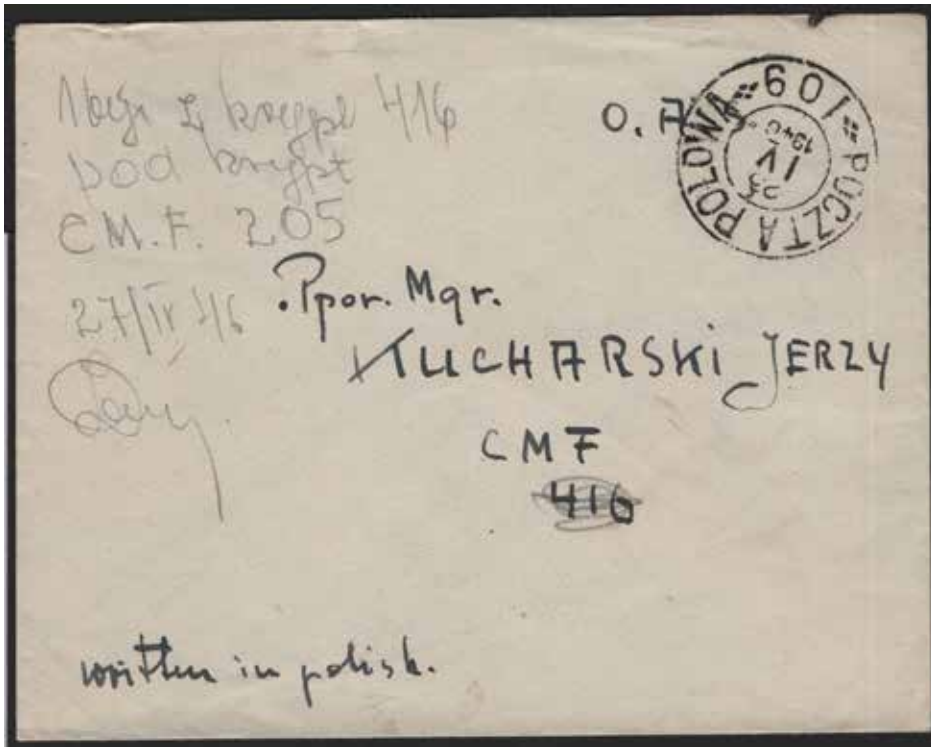 z krypt 416
pod krypt
C.M.F. 205
27/IV 46
O.
POCZTA POLOWA 601
IV
1946
Ppor. Mgr.
KUCHARSKI JERZY
CMF
416
written in polish.